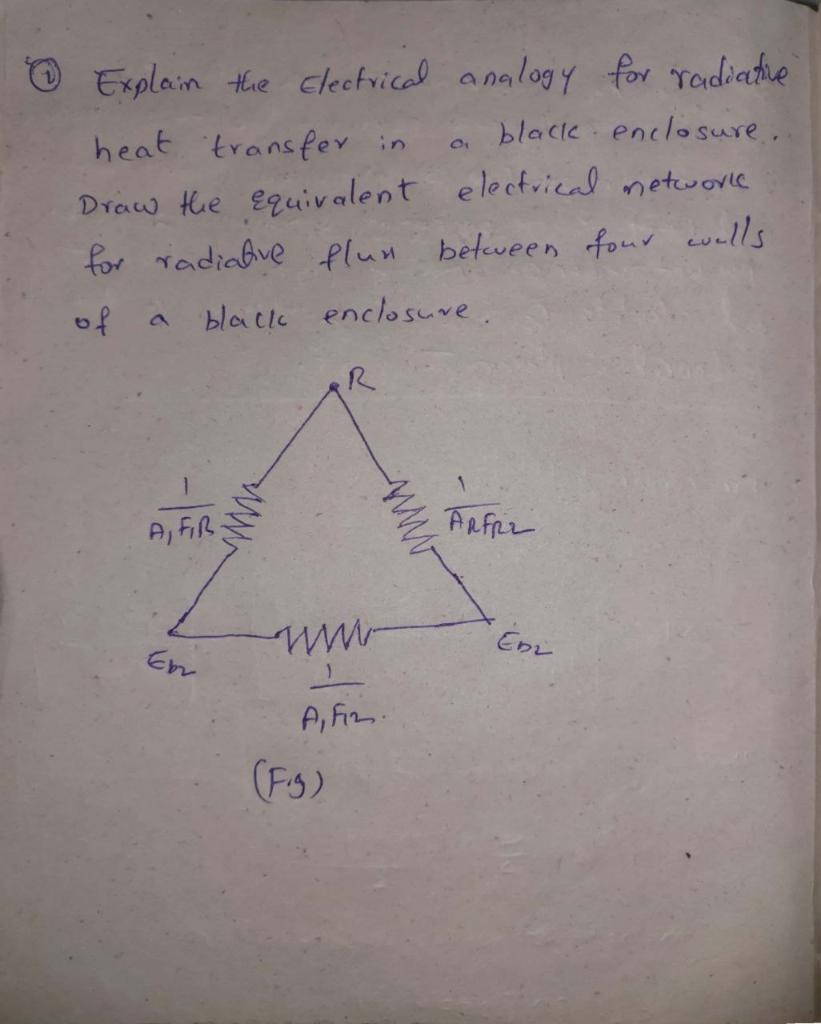 ① Explain the Electrical analogy for radiative
heat transfer in a black enclosure.
Draw the Equivalent electrical network
for radiative flux between four walls
of a black enclosure.
R
1
A1 F1R
1
ARFR2
Eb2
Eb2
1
A1 F12.
(Fig)